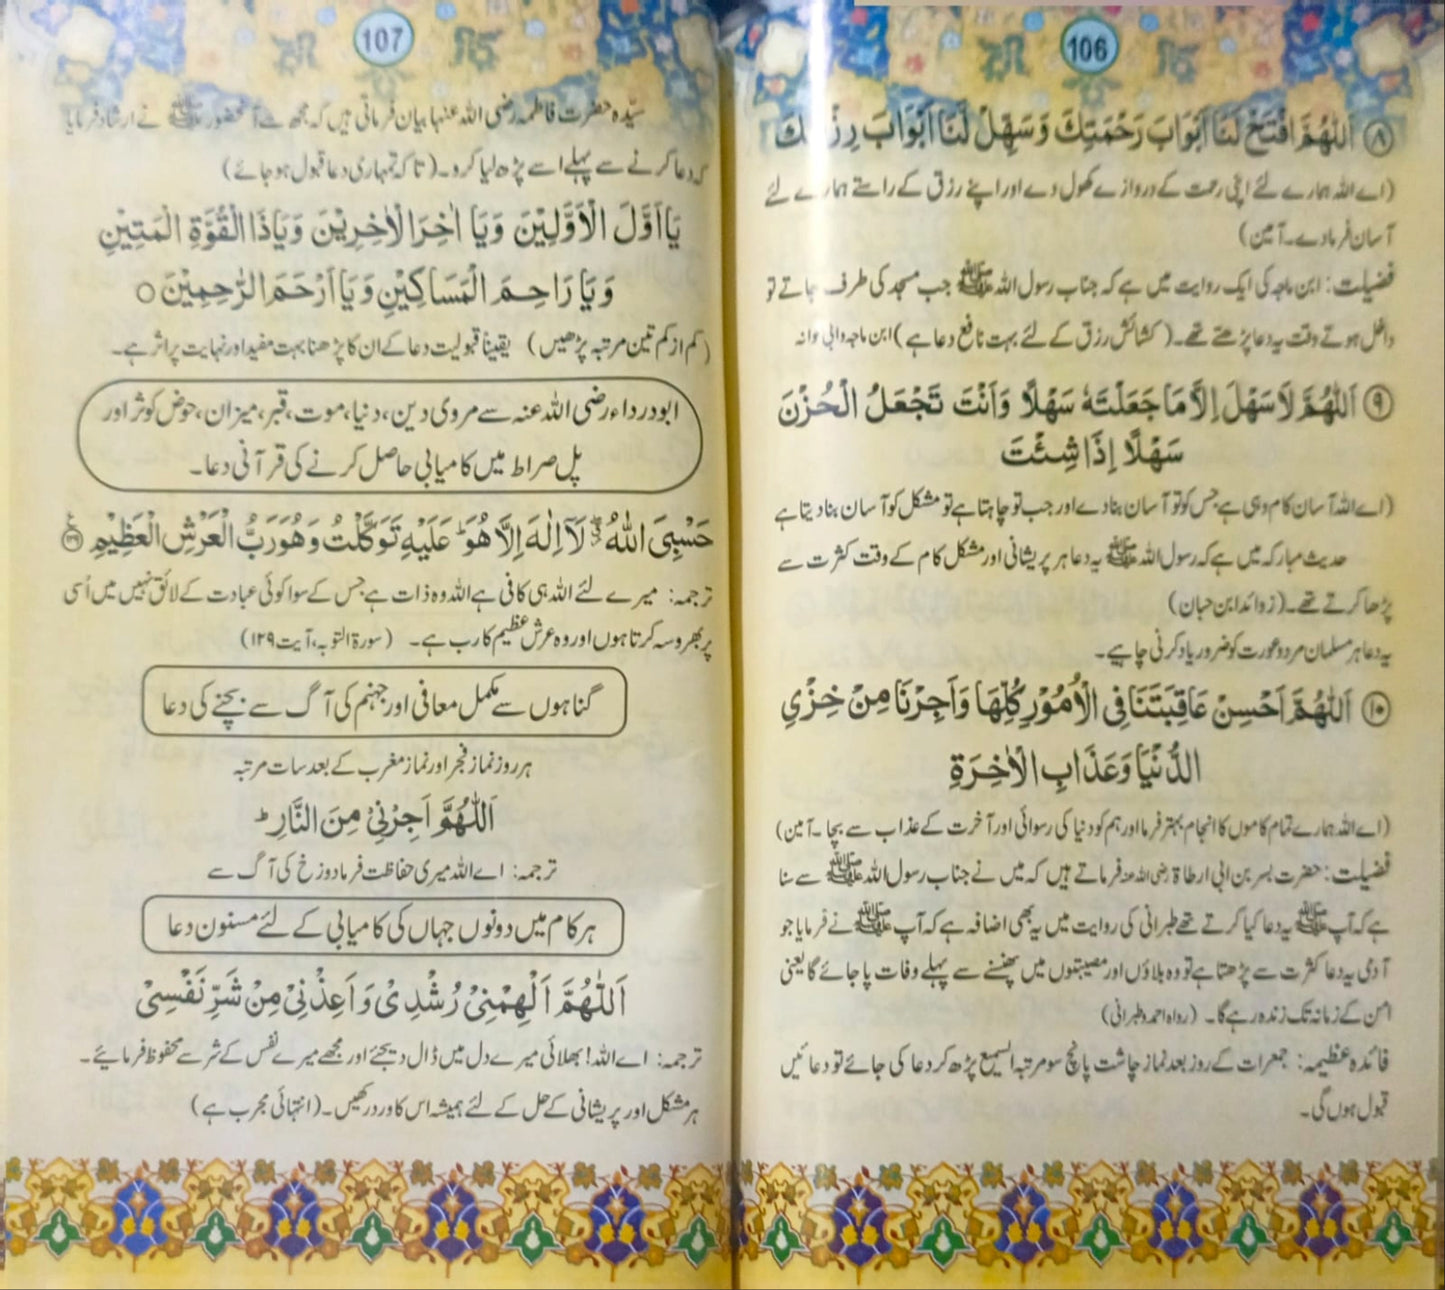 106
۸ اَللّٰهُمَّ افْتَحْ لَنَا اَبْوَابَ رَحْمَتِكَ وَسَهِّلْ لَنَا اَبْوَابَ رِزْقِكَ
(اے اللہ ہمارے لئے اپنی رحمت کے دروازے کھول دے اور اپنے رزق کے راستے ہمارے لئے
آسان فرمادے۔ آمین)
فضیلت: ابن ماجہ کی ایک روایت میں ہے کہ جناب رسول اللہ ﷺ جب مسجد کی طرف جاتے تو
داخل ہوتے وقت یہ دعا پڑھتے تھے۔ (کشائش رزق کے لئے بہت نافع دعا ہے) ابن ماجہ وابی عوانہ
۹ اَللّٰهُمَّ لَا سَهْلَ اِلَّا مَا جَعَلْتَهٗ سَهْلًا وَاَنْتَ تَجْعَلُ الْحُزْنَ
سَهْلًا اِذَا شِئْتَ
(اے اللہ آسان کام وہی ہے جس کو تو آسان بنا دے اور جب تو چاہتا ہے تو مشکل کو آسان بنا دیتا ہے
حدیث مبارکہ میں ہے کہ رسول اللہ ﷺ یہ دعا ہر پریشانی اور مشکل کام کے وقت کثرت سے
پڑھا کرتے تھے۔ (زوائد ابن حبان)
یہ دعا ہر مسلمان مرد و عورت کو ضرور یاد کرنی چاہیے۔
۱۰ اَللّٰهُمَّ اَحْسِنْ عَاقِبَتَنَا فِی الْاُمُوْرِ كُلِّهَا وَاَجِرْنَا مِنْ خِزْیِ
الدُّنْیَا وَعَذَابِ الْاٰخِرَةِ
(اے اللہ ہمارے تمام کاموں کا انجام بہتر فرما اور ہم کو دنیا کی رسوائی اور آخرت کے عذاب سے بچا۔ آمین)
فضیلت: حضرت بسر بن ابی ارطاۃ رضی اللہ عنہ فرماتے ہیں کہ میں نے جناب رسول اللہ ﷺ سے سنا
ہے کہ آپ ﷺ یہ دعا کیا کرتے تھے طبرانی کی روایت میں یہ بھی اضافہ ہے کہ آپ ﷺ نے فرمایا جو
آدمی یہ دعا کثرت سے پڑھتا ہے تو وہ بلاؤں اور مصیبتوں میں پھنسنے سے پہلے وفات پا جائے گا یعنی
امن کے زمانہ تک زندہ رہے گا۔ (رواہ احمد و طبرانی)
فائدہ عظیمہ: جمعرات کے روز بعد نماز چاشت پانچ سو مرتبہ السمیع پڑھ کر دعا کی جائے تو دعائیں
قبول ہوں گی۔
107
سیّدہ حضرت فاطمہ رضی اللہ عنہا بیان فرماتی ہیں کہ مجھ سے آنحضور ﷺ نے ارشاد فرمایا
کہ دعا کرنے سے پہلے اسے پڑھ لیا کرو۔ (تاکہ تمہاری دعا قبول ہو جائے)
یَا اَوَّلَ الْاَوَّلِیْنَ وَیَا اٰخِرَ الْاٰخِرِیْنَ وَیَا ذَا الْقُوَّةِ الْمَتِیْنِ
وَیَا رَاحِمَ الْمَسَاكِیْنِ وَیَا اَرْحَمَ الرّٰحِمِیْنَ ○
(کم از کم تین مرتبہ پڑھیں) یقیناً قبولیت دعا کے ان کا پڑھنا بہت مفید اور نہایت پر اثر ہے۔
ابودرداء رضی اللہ عنہ سے مروی دین، دنیا، موت، قبر، میزان، حوض کوثر اور
پل صراط میں کامیابی حاصل کرنے کی قرآنی دعا۔
حَسْبِیَ اللّٰهُ ۖ لَاۤ اِلٰهَ اِلَّا هُوَ ؕ عَلَیْهِ تَوَكَّلْتُ وَهُوَ رَبُّ الْعَرْشِ الْعَظِیْمِ ﴿۱۲۹﴾ ع
ترجمہ: میرے لئے اللہ ہی کافی ہے اللہ وہ ذات ہے جس کے سوا کوئی عبادت کے لائق نہیں میں اُسی
پر بھروسہ کرتا ہوں اور وہ عرش عظیم کا رب ہے۔ (سورۃ التوبہ، آیت ۱۲۹)
گناہوں سے مکمل معافی اور جہنم کی آگ سے بچنے کی دعا
ہر روز نماز فجر اور نماز مغرب کے بعد سات مرتبہ
اَللّٰهُمَّ اَجِرْنِیْ مِنَ النَّارِ ؕ
ترجمہ: اے اللہ میری حفاظت فرما دوزخ کی آگ سے
ہر کام میں دونوں جہاں کی کامیابی کے لئے مسنون دعا
اَللّٰهُمَّ اَلْهِمْنِیْ رُشْدِیْ وَاَعِذْنِیْ مِنْ شَرِّ نَفْسِیْ
ترجمہ: اے اللہ! بھلائی میرے دل میں ڈال دیجئے اور مجھے میرے نفس کے شر سے محفوظ فرمائیے۔
ہر مشکل اور پریشانی کے حل کے لئے ہمیشہ اس کا ورد رکھیں۔ (انتہائی مجرب ہے)